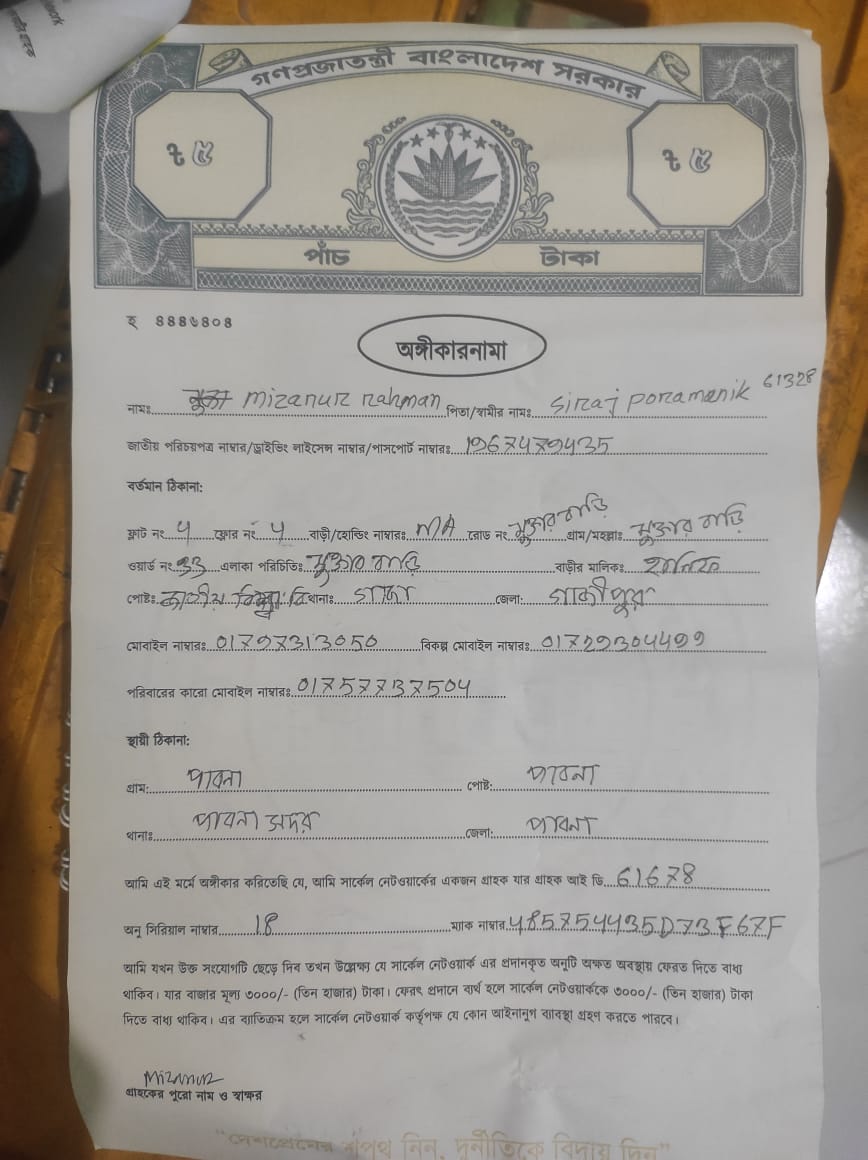 গণপ্রজাতন্ত্রী বাংলাদেশ সরকার
৳ ৫ ৳ ৫
পাঁচ টাকা
হ ৪৪৪৬৪০৪
অঙ্গীকারনামা
61328
নামঃ mizanur rahman পিতা/স্বামীর নামঃ siraj poramanik
জাতীয় পরিচয়পত্র নাম্বার/ড্রাইভিং লাইসেন্স নাম্বার/পাসপোর্ট নাম্বারঃ 1967479435
বর্তমান ঠিকানা:
ফ্লাট নং 4 ফ্লোর নং 4 বাড়ী/হোল্ডিং নাম্বারঃ N/A রোড নং মুক্তার বাড়ি গ্রাম/মহল্লাঃ মুক্তার বাড়ি
ওয়ার্ড নং 33 এলাকা পরিচিতিঃ মুক্তার বাড়ি বাড়ীর মালিকঃ হানিফ
পোষ্টঃ জাতীয় থানাঃ গাছা জেলা: গাজীপুর
মোবাইল নাম্বারঃ 01797313050 বিকল্প মোবাইল নাম্বারঃ 01729304499
পরিবারের কারো মোবাইল নাম্বারঃ 01757737504
স্থায়ী ঠিকানা:
গ্রাম: পাবনা পোষ্ট: পাবনা
থানাঃ পাবনা সদর জেলা: পাবনা
আমি এই মর্মে অঙ্গীকার করিতেছি যে, আমি সার্কেল নেটওয়ার্কের একজন গ্রাহক যার গ্রাহক আই ডি 61678
অনু সিরিয়াল নাম্বার 18 ম্যাক নাম্বার 485754435D73F67F
আমি যখন উক্ত সংযোগটি ছেড়ে দিব তখন উল্লেক্ষ্য যে সার্কেল নেটওয়ার্ক এর প্রদানকৃত অনুটি অক্ষত অবস্থায় ফেরত দিতে বাধ্য
থাকিব। যার বাজার মূল্য ৩০০০/- (তিন হাজার) টাকা। ফেরৎ প্রদানে ব্যর্থ হলে সার্কেল নেটওয়ার্ককে ৩০০০/- (তিন হাজার) টাকা
দিতে বাধ্য থাকিব। এর ব্যতিক্রম হলে সার্কেল নেটওয়ার্ক কর্তৃপক্ষ যে কোন আইনানুগ ব্যবস্থা গ্রহণ করতে পারবে।
Mizanur
গ্রাহকের পুরো নাম ও স্বাক্ষর
"দেশপ্রেমের শপথ নিন, দুর্নীতিকে বিদায় দিন"